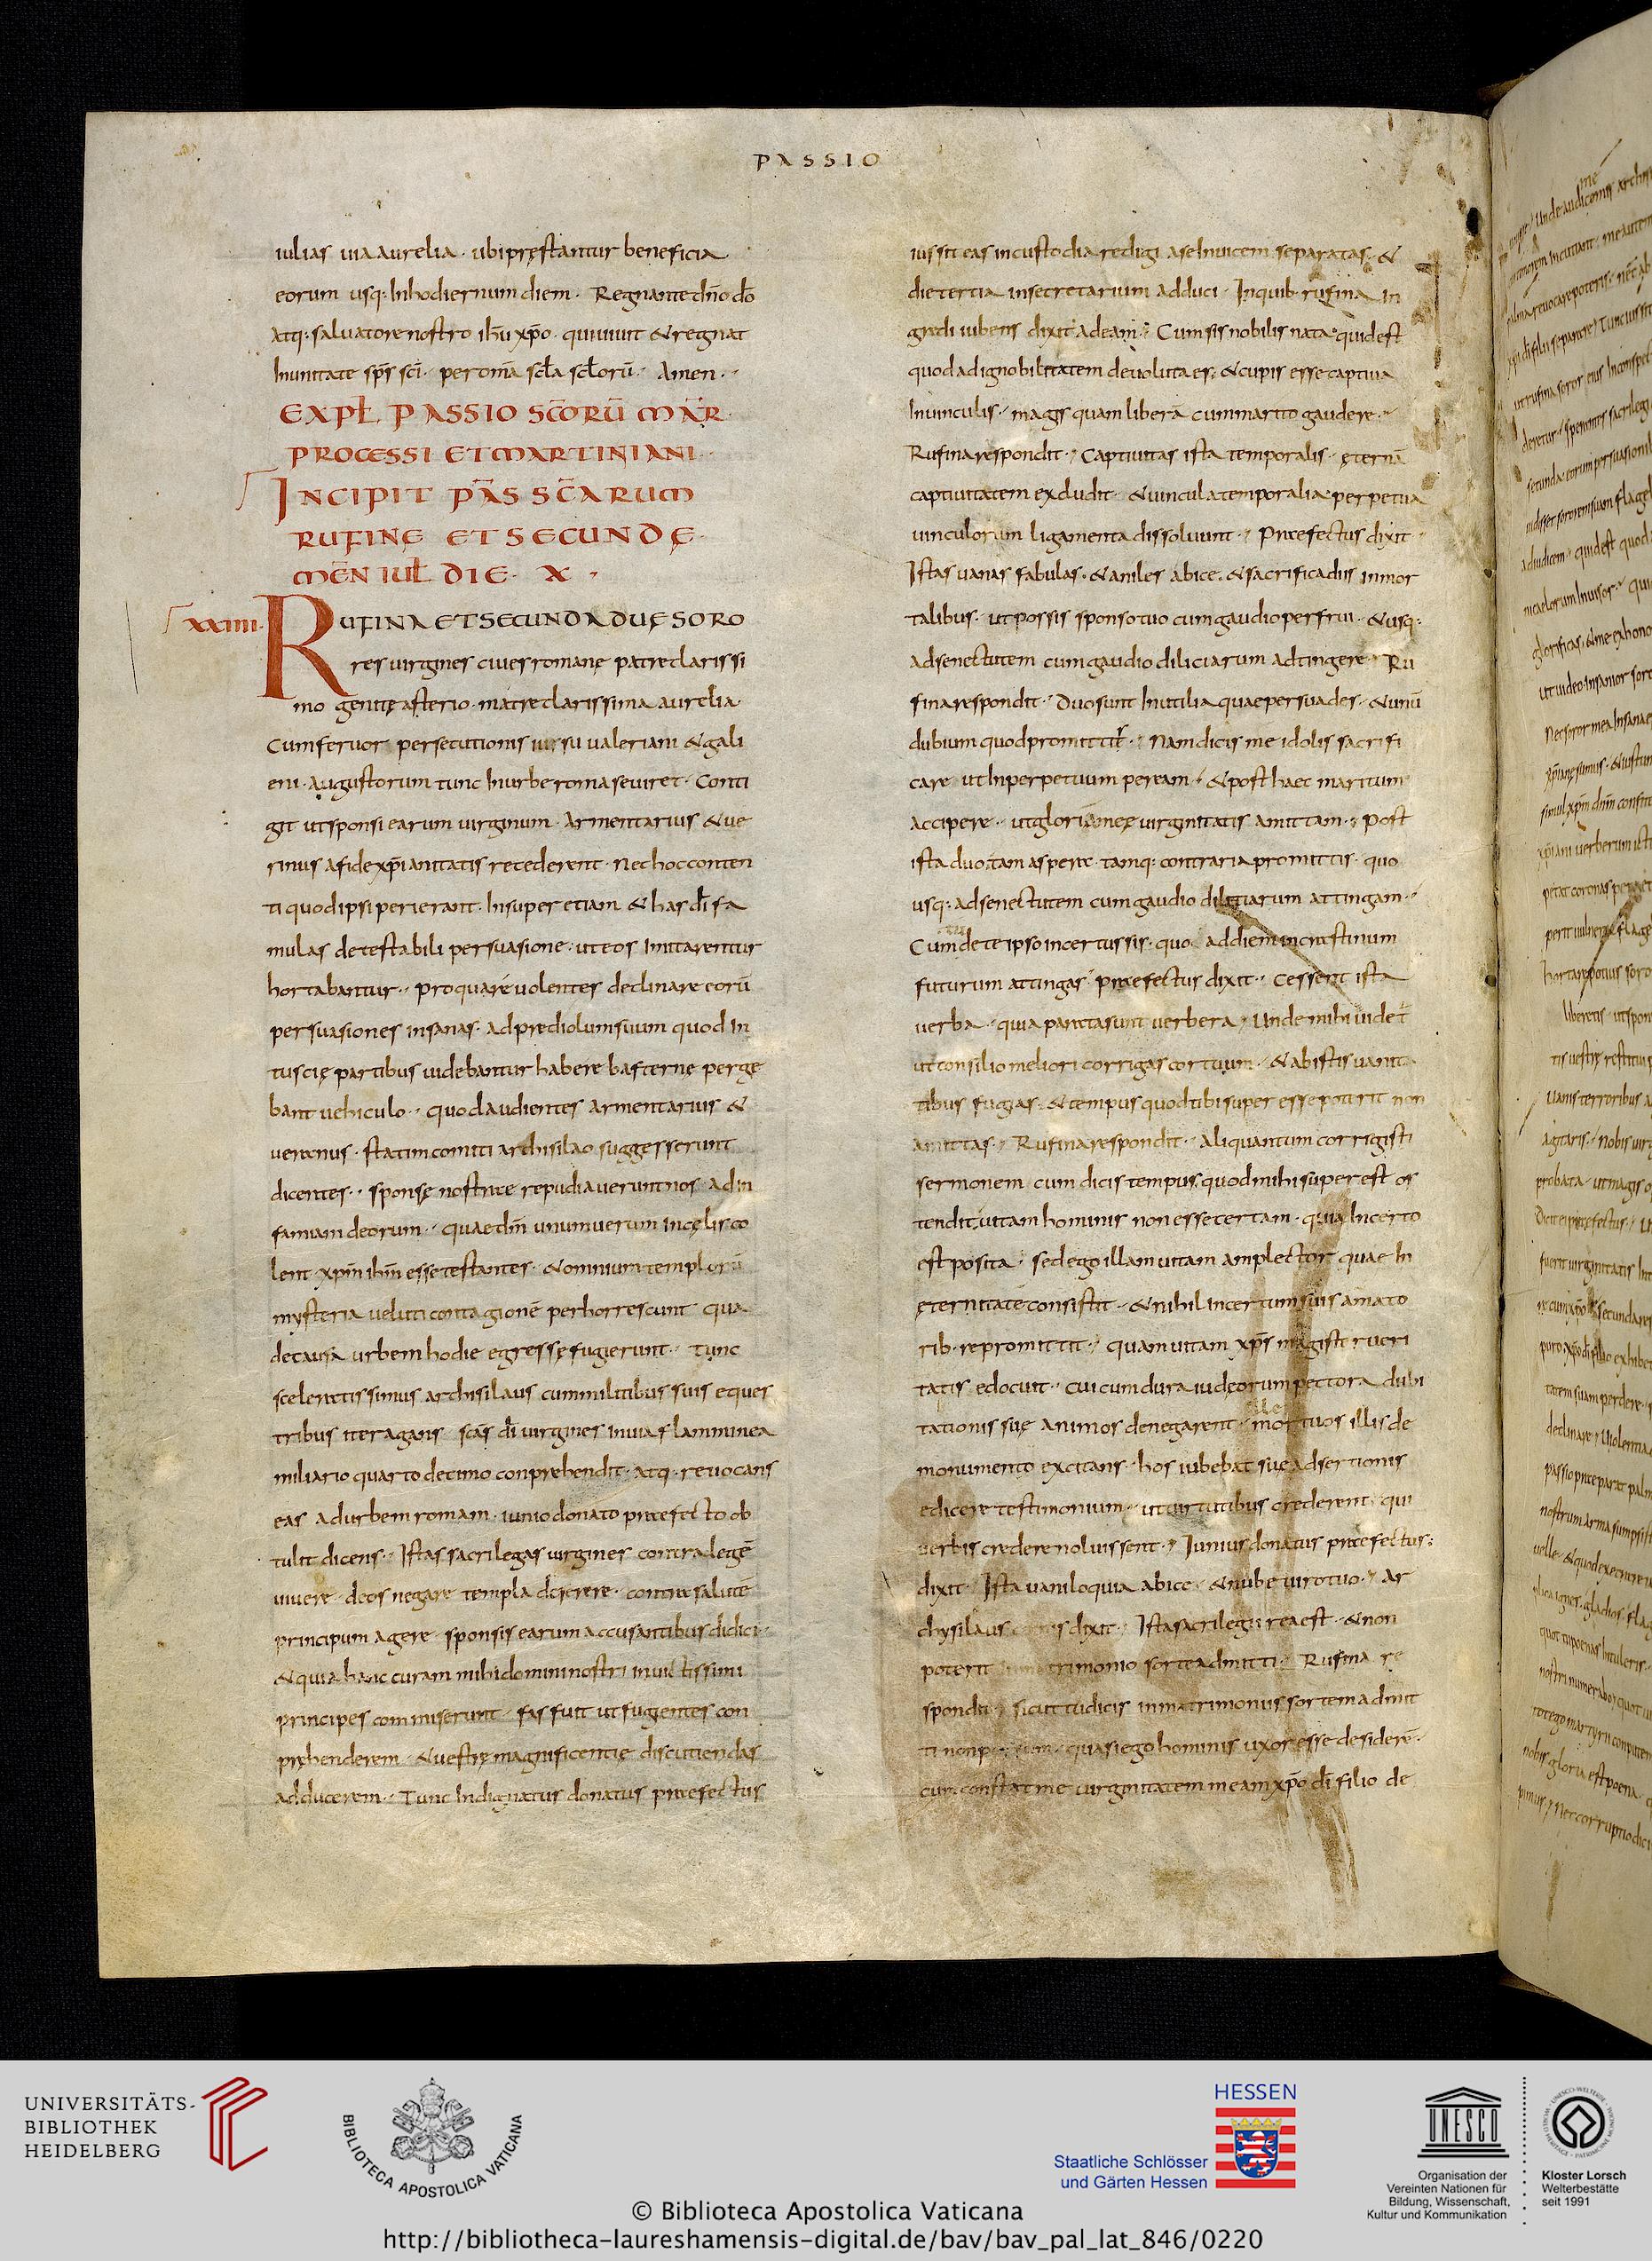 PASSIO
iulias uia aurelia · ubi pręstantur beneficia
eorum usq; In hodiernum diem · Regnante dn̄o dō
atq; saluatore nostro ihū xp̄o · qui uiuit & regnat
In unitate sp̄s sc̄i · per om̄a sc̄la sc̄lorū · Amen ·
EXPL̄ PASSIO SC̄ORŪ MAR̄
PROCESSI ET MARTINIANI ·
INCIPIT PAS̄ SC̄ARUM
RUFINĘ ET SECUNDĘ ·
MEN̄ IUL̄ DIE · X ·
XXIIII · RUFINA ET SECUNDA DUĘ SORO
res uirgines ciues romanę patre clarissi
mo gente asterio · matre clarissima aurelia ·
Cum feruor persecutionis iussu ualeriani & gali
eni · Augustorum tunc In urbe roma seuiret · Conti
git ut sponsi earum uirginum · Armentarius & ue
rinus a fide xp̄ianitatis recederent · nec hoc conten
ti quod ipsi perierant · Insuper etiam & has dī fa
mulas detestabili persuasione · ut eos Imitarentur
hortabantur · · pro qua re uolentes declinare eorū
persuasiones insanas · ad prediolum suum quod In
tuscię partibus uidebantur habere basternę perge
bant uehiculo · · quod audientes armentarius &
uerenus · statim comiti archisilao suggesserunt
dicentes · · sponsę nostrae repudiauerunt nos ad In
famiam deorum · · quae dn̄m unum uerum In cęlis co
lent · xp̄m ihm̄ esse testantes · & omnium templorū
mysteria ueluti contagionē perhorrescunt qua
de causa urbem hodie egressę fugierunt · · Tunc
sceleratissimus archisilaus cum militibus suis eques
tribus iter agans sc̄as dī uirgines in uia flamminea
miliario quarto decimo conprehendit · atq; reuocans
eas ad urbem romam · iunio donato praefecto ob
tulit dicens · · Istas sacrilegas uirgines contra legē
uiuere · deos negare templa deicrere · contra salutē
principum agere · sponsis earum accusantibus didici · ·
& quia hanc curam mihi domini nostri inuictissimi
principes commiserunt · fas fuit ut fugentes con
prehenderem · & uestrę magnificentię discutiendas
adducerem · · Tunc Indignatus donatus praefectus
iussit eas in custodia redigi a se Inuicem separatas · &
die tertia in secretarium adduci · In quib; rufina in
gredi iubens dixit ad eam · Cum sis nobilis nata quid est
quod ad ignobilitatem deuoluta es · & cupis esse captiua
In uinculis · magis quam libera cum marito gaudere · ·
Rufina respondit · Captiuitas ista temporalis ęternā
captiuitatem excludit · & uincula temporalia perpetua
uinculorum ligamenta dissoluunt · Praefectus dixit ·
Istas uanas fabulas · & aniles abice · & sacrifica diis inmor
talibus · ut possis sponso tuo cum gaudio perfrui · & usq;
ad senectutem cum gaudio diliciarum adtingere · Ru
fina respondit · Duo sunt Inutilia quae persuades · & unū
dubium quod promittit · Nam dicis me idolis sacrifi
care ut In perpetuum peream · & post haec maritum
accipere · ut gloriam meę uirginitatis amittam · post
ista duo tam aspera tamq; contraria promittis · quo
usq; ad senectutem cum gaudio dilitiarum attingam ·
Cum de te ipso incertus sis · quo ad diem in crastinum
futurum attingas · praefectus dixit · Cessent ista
uerba · quia parata sunt uerbera · Unde mihi uidet̄
ut consilio meliori corrigas cor tuum · & ab istis uanita
tibus fugias · & tempus quod tibi super esse poterit non
amittas · Rufina respondit · Aliquantum correxisti
sermonem cum dicis tempus quod mihi super est os
tendit uitam hominis non esse certam · quia Incerto
est posita · sed ego illam uitam amplector quae In
ęternitate consistit · & nihil incertum suis amato
rib; repromittit · quam uitam xp̄s magister ueri
tatis edocuit · cui cum dura iudeorum pectora dubi
tationis suę animos denegarent · mortuos ille illis de
monumento excitans · hos iubebat suę adsertionis
edicere testimonium · ut uirtutibus crederent qui
uerbis credere noluissent · Iunius donatus praefectus ·
dixit · Ista uaniloquia abice · & nube uiro tuo · Ar
chysilaus dixit · Ista sacrilegii rea est · & non
poterit matrimonio sorte admitti · Rufina re
spondit · sicut tu dicis in matrimonius sortem admit
ti non · quasi ego hominis uxor esse desiderē ·
cum constat me uirginitatem meam xp̄o dī filio de
UNIVERSITÄTS-
BIBLIOTHEK
HEIDELBERG
BIBLIOTECA APOSTOLICA VATICANA
HESSEN
Staatliche Schlösser
und Gärten Hessen
UNESCO
Organisation der
Vereinten Nationen für
Bildung, Wissenschaft,
Kultur und Kommunikation
Kloster Lorsch
Welterbestätte
seit 1991
© Biblioteca Apostolica Vaticana
http://bibliotheca-laureshamensis-digital.de/bav/bav_pal_lat_846/0220